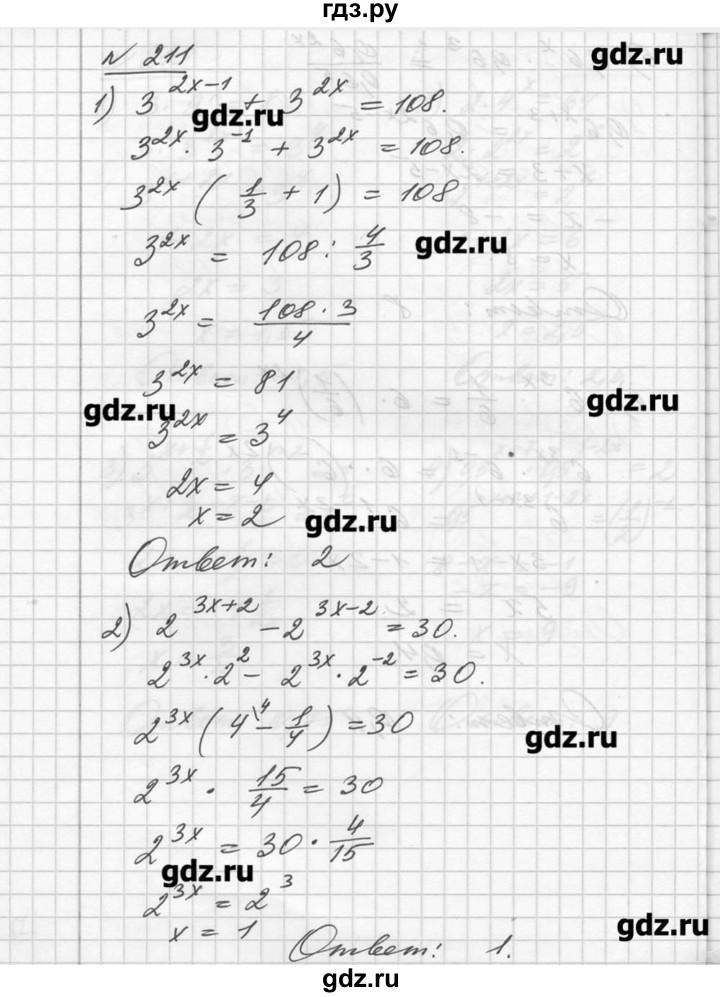 гдз.ру
N 211
gdz.ru
1) 3^(2x-1) + 3^(2x) = 108.
gdz.ru
3^(2x) · 3^(-1) + 3^(2x) = 108.
3^(2x) (1/3 + 1) = 108
3^(2x) = 108 : 4/3
gdz.ru
3^(2x) = (108 · 3)/4
3^(2x) = 81
gdz.ru
gdz.ru
3^(2x) = 3^4
2x = 4
x = 2
gdz.ru
Ответ: 2
2) 2^(3x+2) - 2^(3x-2) = 30.
2^(3x) · 2^2 - 2^(3x) · 2^(-2) = 30.
2^(3x) (4\4 - 1/4) = 30
gdz.ru
2^(3x) · 15/4 = 30
2^(3x) = 30 · 4/15
gdz.ru
2^(3x) = 2^3
x = 1
gdz.ru
Ответ: 1.
gdz.ru